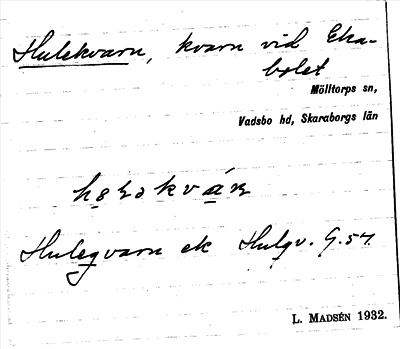 Hulekvarn, kvarn vid Eka-
bolet
Mölltorps sn,
Vadsbo hd, Skaraborgs län
Hulegvarn ek Hulqv. G. 57.
L. MADSÉN 1932.